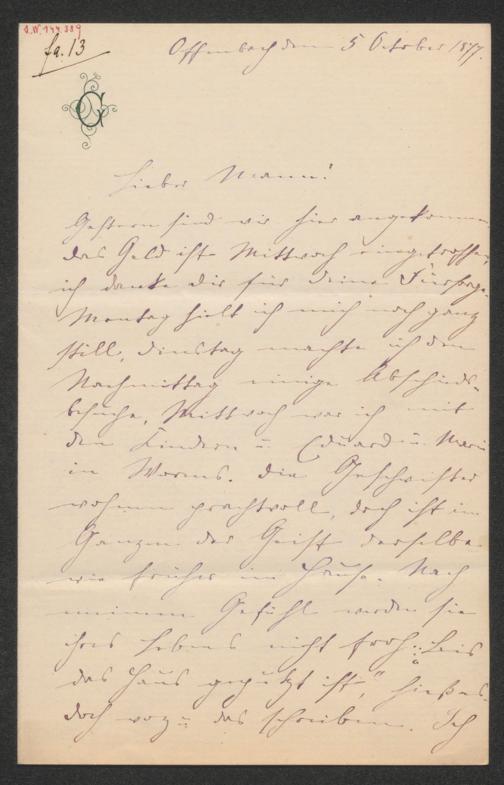 I.N. 144.389
fa. 13
Offenbach den 5 October 1877.
G
Lieber Mann!
Gestern sind wir hier angekommen
das Geld ist Mittwoch eingetroffen,
ich danke dir für deine Fürsorge.
Montag hielt ich mich noch ganz
still, dinstag machte ich den
Nachmittag einige Abschieds-
besuche, Mittwoch war ich mit
den Kindern u. Eduard u. Marie
in Worms. die Geschwister
wohnen prachtvoll, doch ist im
Ganzen der Geist derselbe
wie früher im Hause. Nach
meinem Gefühl werden sie
ihres Lebens nicht froh: "Bis
das Haus geputzt ist", hieß es
doch wozu das schreiben. Ich